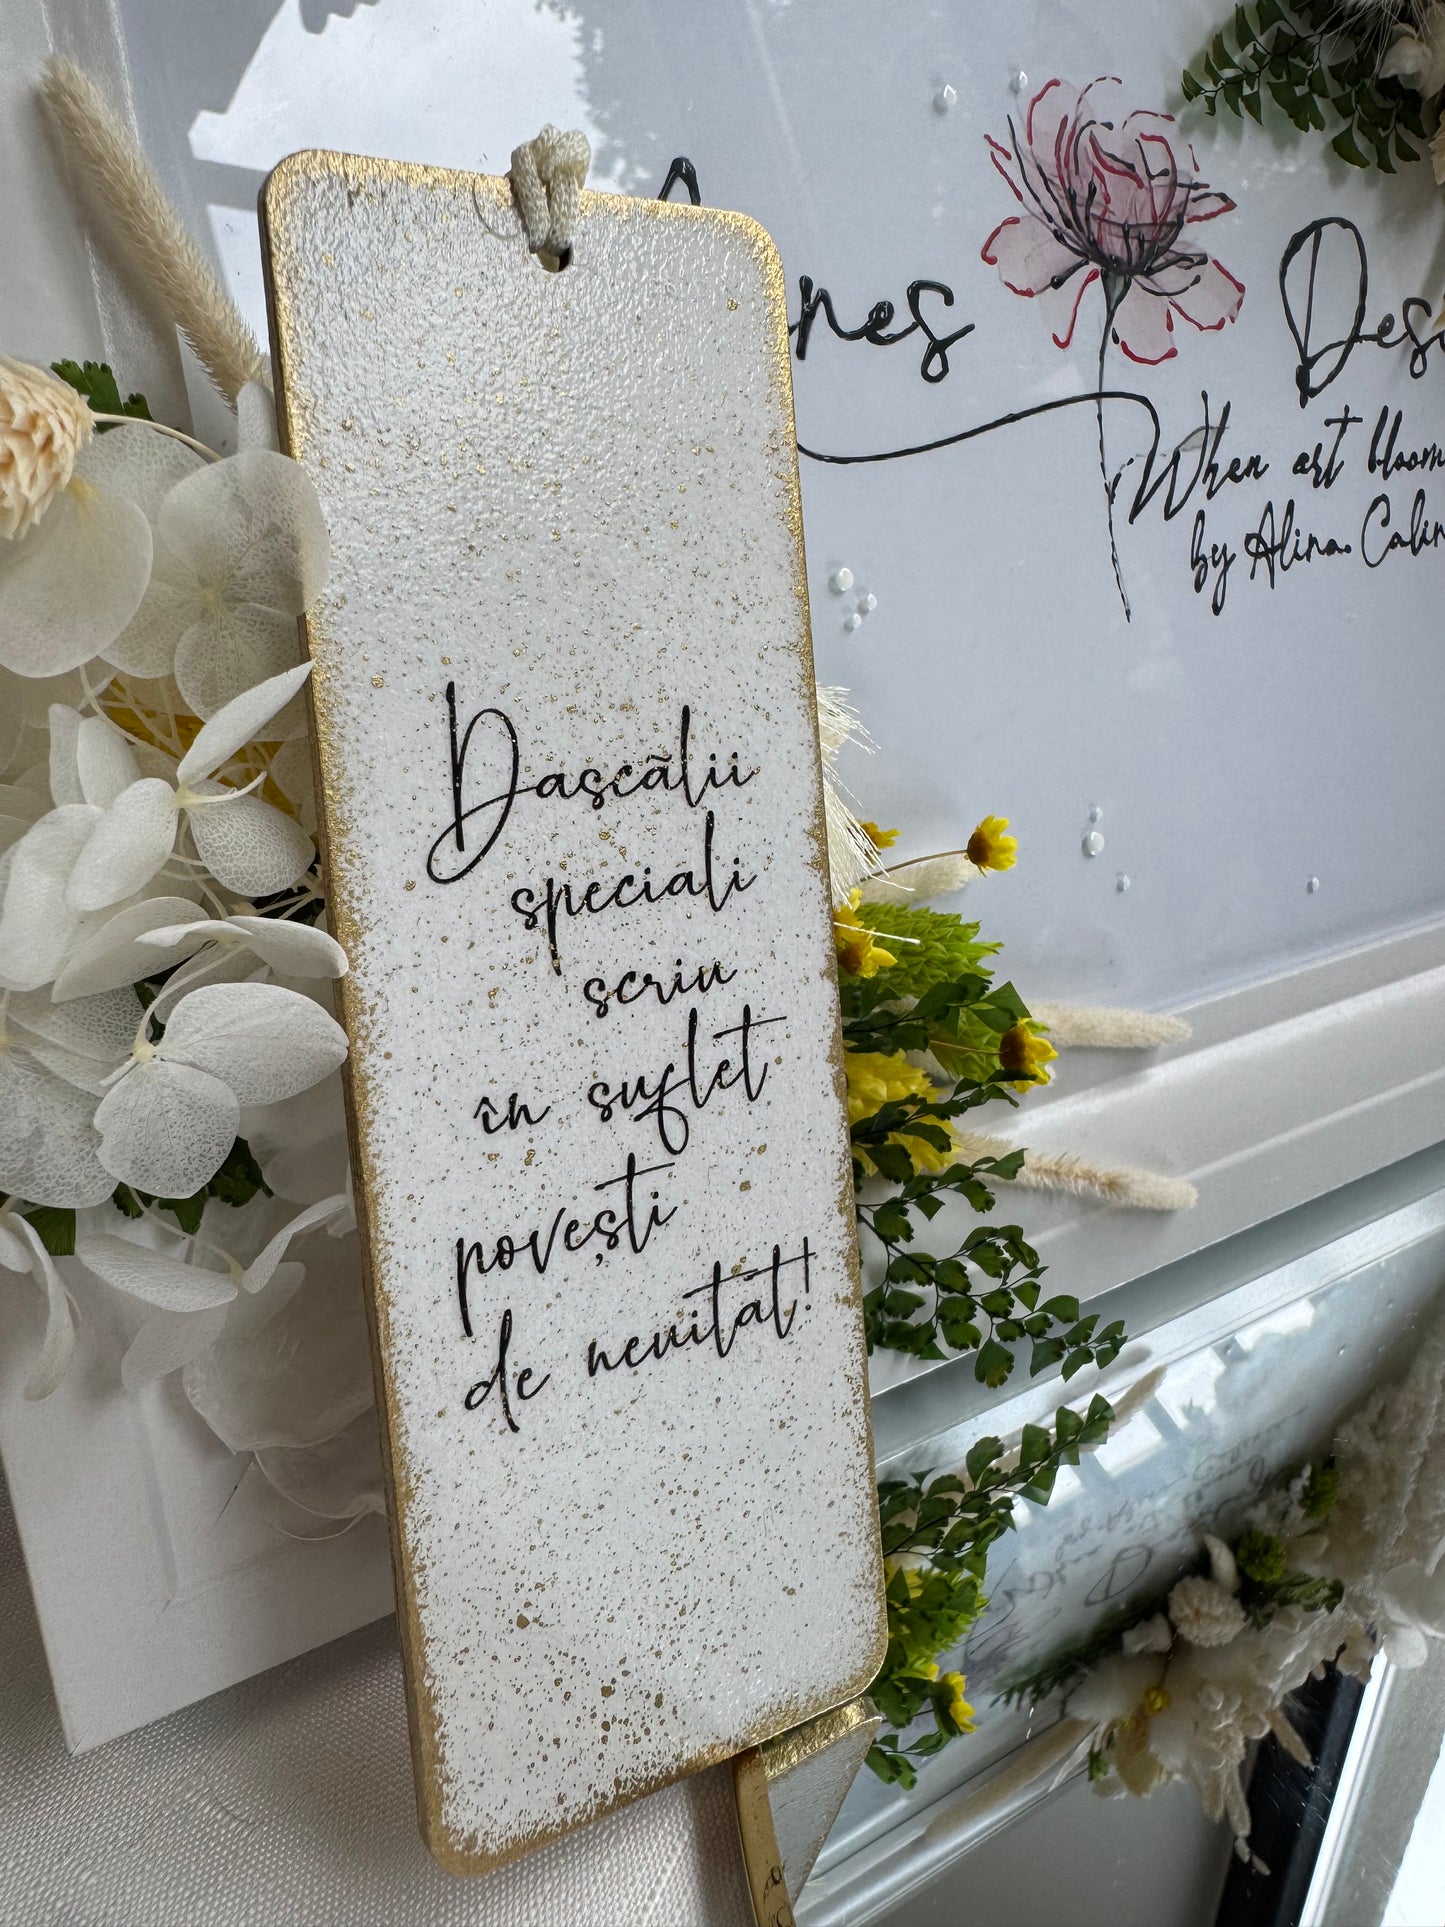 Dascãlii
speciali
scriu
în suflet
povești
de neuitat!
When art bloom
by Alina Calin